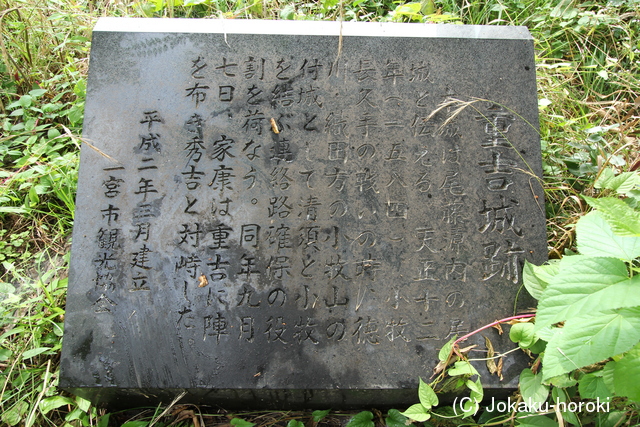 重吉城跡
本城は尾藤源内の居
城と伝える。天正十二
年(一五八四)、小牧
長久手の戦いの時に徳
川・織田方の小牧山の
付城として清須と小牧
を結ぶ連絡路確保の役
割を荷なう。同年九月
七日、家康は重吉に陣
を布き秀吉と対峙した
平成二年三月建立
一宮市観光協会
(C) Jokaku-horoki